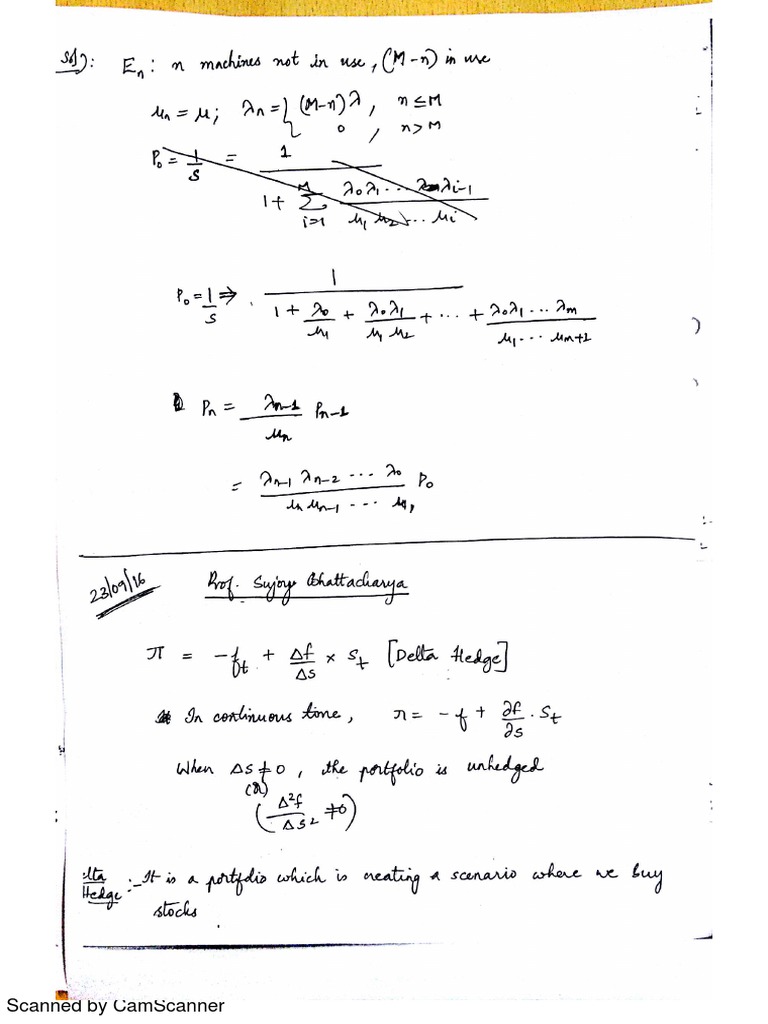 Sol): En : n machines not in use, (M-n) in use
μn = μ; λn = { (M-n)λ, n ≤ M
0, n > M
P0 = 1/S = 1 / (1 + Σ_{i=1}^{M} λ0 λ1 ... λi-1 / μ1 μ2 ... μi)
P0 = 1/S ⇒ 1 / (1 + λ0/μ1 + λ0λ1/μ1μ2 + ... + λ0λ1...λm/μ1...μm+1)
Pn = λn-1/μn Pn-1
= λn-1 λn-2 ... λ0 / μn μn-1 ... μ1 P0
23/09/16 Prof. Sujoy Bhattacharya
π = -ft + Δf/ΔS × St [Delta Hedge]
In continuous time, π = -f + ∂f/∂s . St
When ΔS ≠ 0, the portfolio is unhedged
(or)
(Δ²f/ΔS² ≠ 0)
elta Hedge :- It is a portfolio which is creating a scenario where we buy
stocks.
Scanned by CamScanner